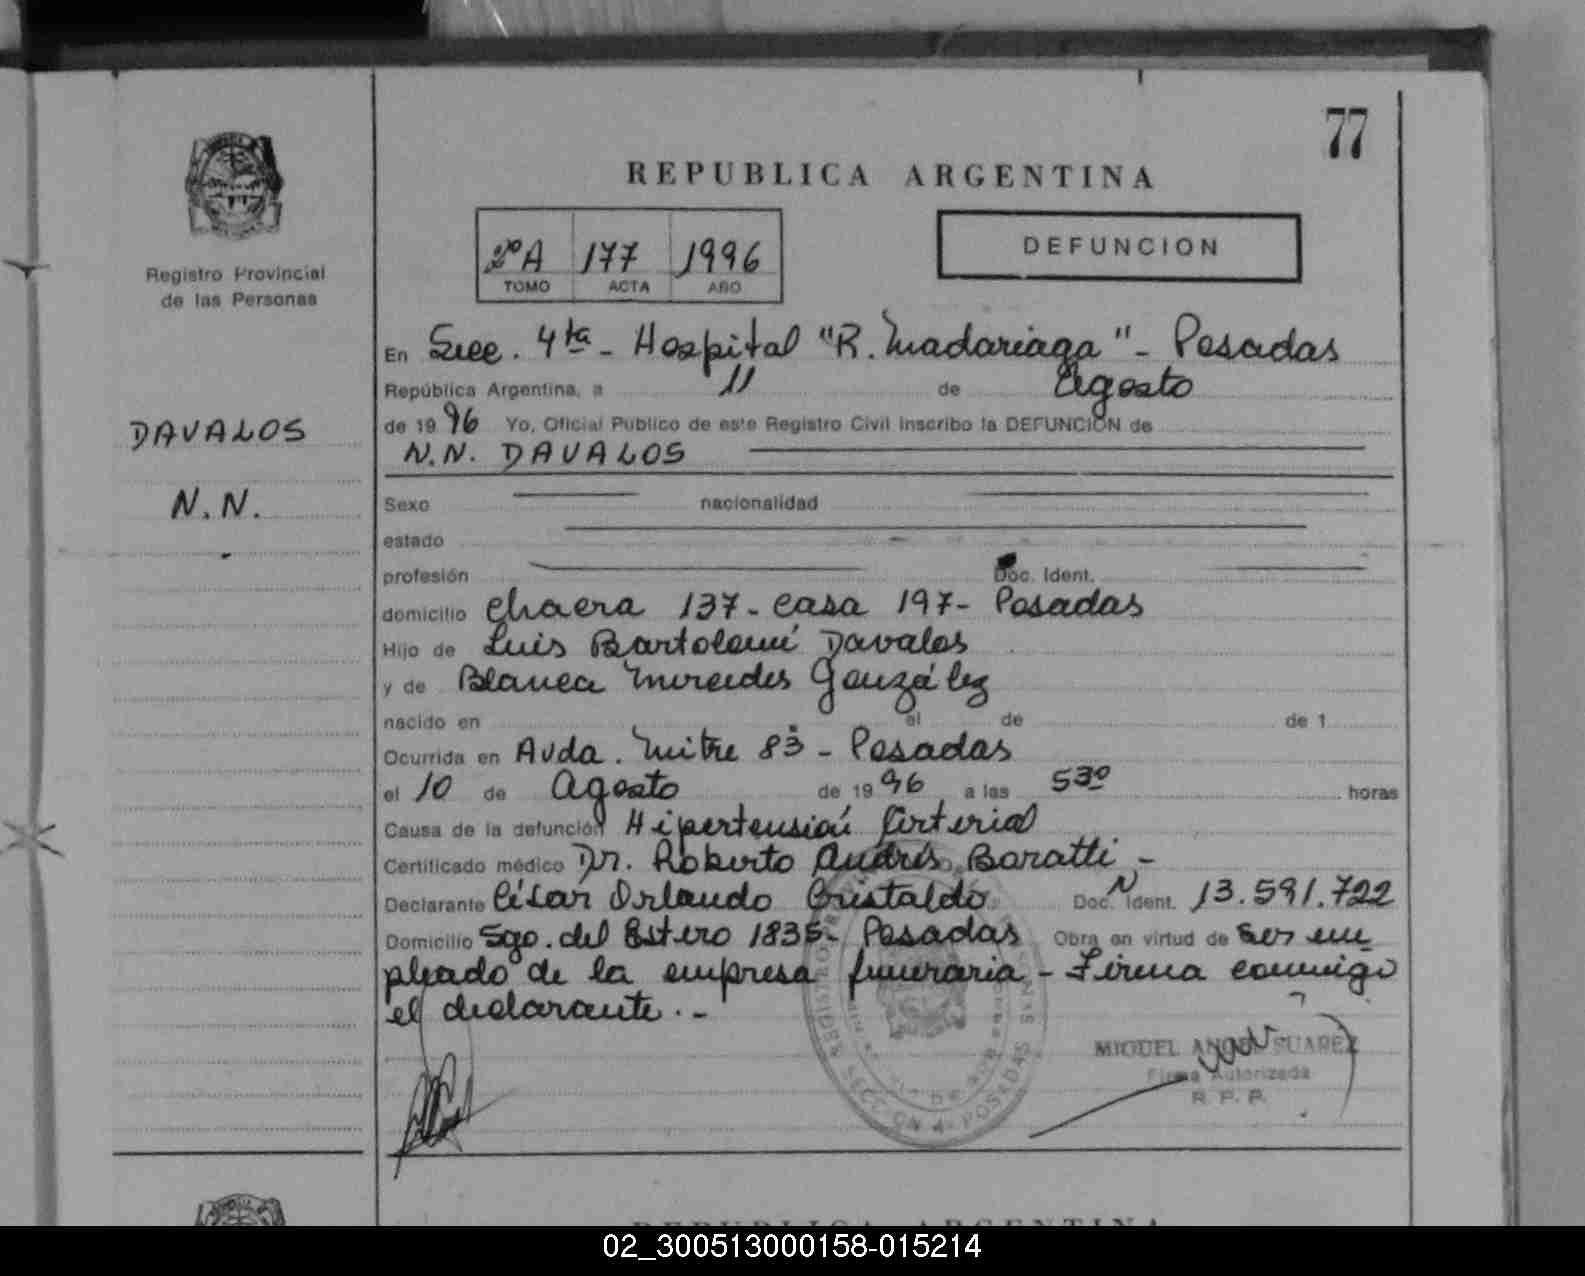 77
REPUBLICA ARGENTINA
2º A 177 1996
TOMO ACTA AÑO
DEFUNCION
Registro Provincial
de las Personas
DAVALOS
N.N.
En Secc. 4ta - Hospital "R. Madariaga" - Posadas
República Argentina, a 11 de Agosto
de 1996 Yo, Oficial Público de este Registro Civil inscribo la DEFUNCION de
N.N. DAVALOS
Sexo nacionalidad
estado
profesión Doc. Ident.
domicilio Chacra 137 - Casa 197 - Posadas
Hijo de Luis Bartolomé Davalos
y de Blanca Mercedes González
nacido en el de de 1
Ocurrida en Avda. Mitre 83 - Posadas
el 10 de Agosto de 1996 a las 5 30 horas
Causa de la defunción Hipertensión Arterial
Certificado médico Dr. Roberto Andrés Baratti -
Declarante César Orlando Cristaldo Doc. N Ident. 13.591.722
Domicilio Sgo. del Estero 1835 - Posadas Obra en virtud de Ser em
pleado de la empresa funeraria - Firma conmigo
el declarante. -
MIGUEL ANGEL SUAREZ
Firma Autorizada
R. P. P.
REPUBLICA ARGENTINA
02_300513000158-015214